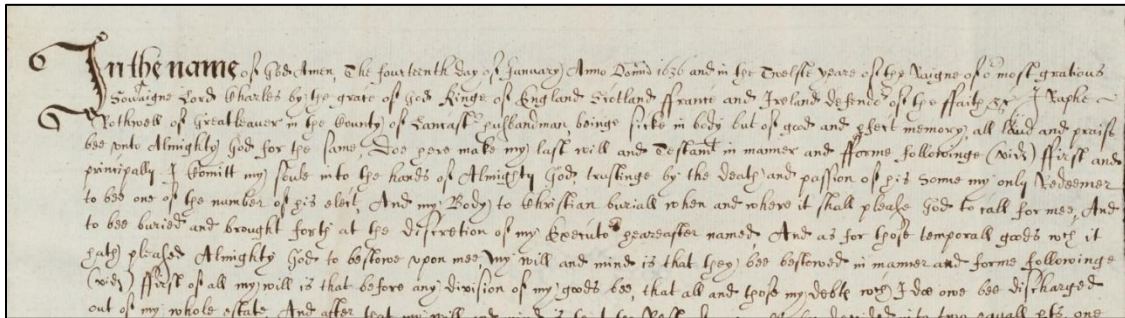 In the name of God Amen, The fourteenth day of January Anno Domini 1636 and in the Twelfte yeare of the Raigne of or most gratious
Soveraigne Lord Charles by the grace of God Kinge of England Scotland ffrance and Ireland defender of the ffaith &c I Raphe
Rothwell of Greatleaver in the County of Lancastr husbandman, beinge sicke in body but of good and pfect memory all laud and praise
bee vnto Almighty God for the same, Doe here make my last will and Testamt in manner and fforme followinge (vidz) ffirst and
principally I Comitt my soule into the hands of Almighty God, trustinge by the death and passion of his Sonne my only Redeemer
to bee one of the number of his elect, And my Body to Christian buriall when and where it shall please God to call for mee, And
to bee buried and brought forth at the discretion of my Executors hereafter named, And as for those temporall goods wch it
hath pleased Almighty God to bestowe vpon mee My will and mind is that they bee bestowed in manner and forme followinge
(vidz) ffirst of all my will is that before any division of my goods bee, that all and those my debts wch I doe owe bee discharged
out of my whole estate, And after that my will and mind is that the Rest devided into two equall pts, one